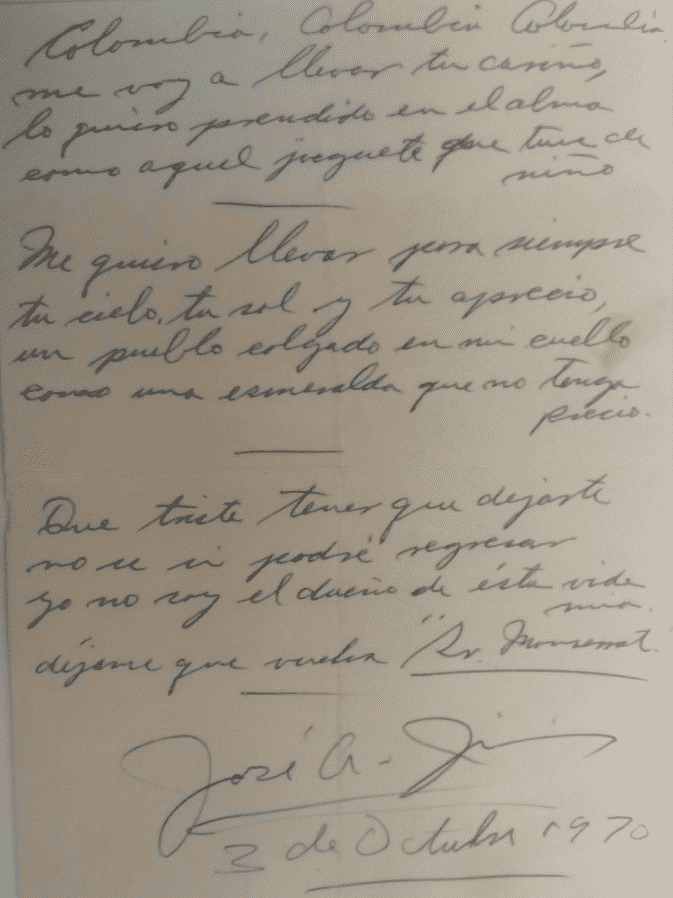 Colombia, Colombia Colombia
me voy a llevar tu cariño,
lo quiero prendido en el alma
como aquel juguete que tuve de
niño
Me quiero llevar para siempre
tu cielo, tu sol y tu aprecio,
un pueblo colgado en mi cuello
como una esmeralda que no tenga
precio.
Que triste tener que dejarte
no se si podré regresar
yo no soy el dueño de ésta vida
mia.
déjame que vuelva "Sr. Monserrat.
José A. Jimenez
3 de Octubre 1970